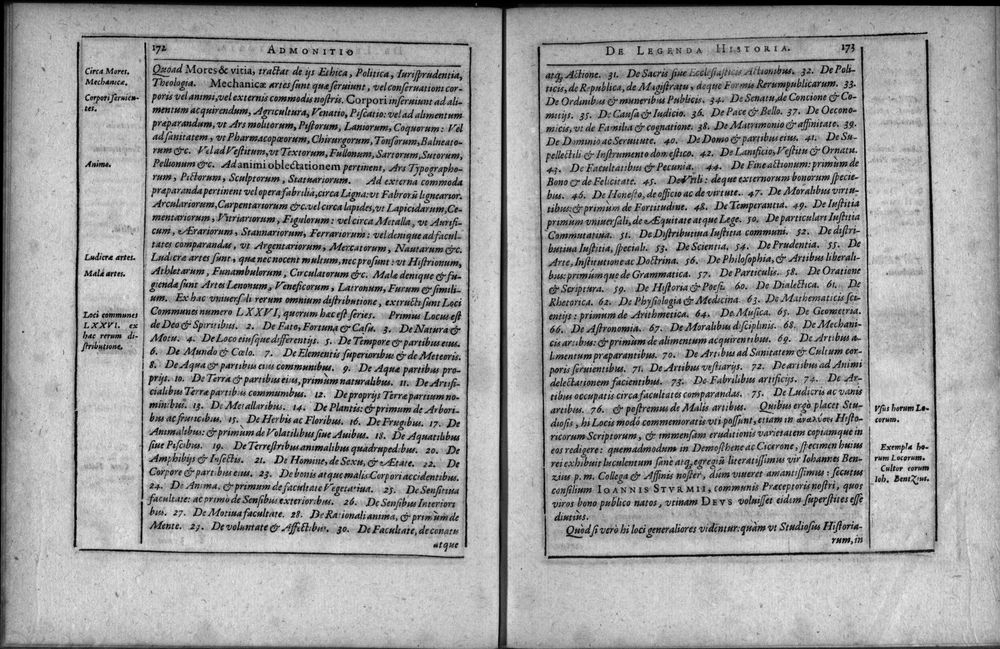 172 ADMONITIO
Circa Mores.
Mechanicæ.
Corpori seruientes.
Anima.
Ludicræ artes.
Malæ artes.
Loci communes
LXXVI. ex
hac rerum di-
stributione.
Quoad Mores & vitia, tractat de ijs Ethica, Politica, Iurisprudentia,
Theologia. Mechanicæ artes sunt quæ seruiunt, vel conseruationi cor-
poris vel animi, vel externis commodis nostris. Corpori inseruiunt ad ali-
mentum acquirendum, Agricultura, Venatio, Piscatio: vel ad alimentum
præparandum, vt Ars molitorum, Pistorum, Laniorum, Coquorum: Vel
ad sanitatem, vt Pharmacopæorum, Chirurgorum, Tonsorum, Balneato-
rum &c. Vel ad Vestitum, vt Textorum, Fullonum, Sartorum, Sutorum,
Pellionum &c. Ad animi oblectationem pertinent, Ars Typographo-
rum, Pictorum, Sculptorum, Statuariorum. Ad externa commoda
præparanda pertinent vel opera fabrilia, circa Ligna: vt Fabrorũ lignearior.
Arculariorum, Carpentariorum &c. vel circa lapides, vt Lapicidarum, Ce-
mentariorum, Vitriariorum, Figulorum: vel circa Metalla, vt Aurifi-
cum, Ærariorum, Stannariorum, Ferrariorum: vel denique ad facul-
tates comparandas, vt Argentariorum, Mercatorum, Nautarum &c.
Ludicræ artes sunt, quæ nec nocent multum, nec prosunt: vt Histrionum,
Athletarum, Funambulorum, Circulatorum &c. Malæ denique & fu-
giendæ sunt Artes Lenonum, Veneficorum, Latronum, Furum & simili-
um. Ex hac vniuersali rerum omnium distributione, extructi sunt Loci
Communes numero LXXVI, quorum hac est series. Primus Locus est
de Deo & Spiritibus. 2. De Fato, Fortuna & Casu. 3. De Natura &
Motu. 4. De Loco eiusque differentijs. 5. De Tempore & partibus eius.
6. De Mundo & Cœlo. 7. De Elementis superioribus & de Meteoris.
8. De Aqua & partib eius communibus. 9. De Aquæ partibus pro-
prijs. 10. De Terra & partib eius, primùm naturalibus. 11. De Artifi-
cialibus Terræ partibus communibus. 12. De proprijs Terræ partium no-
minibus. 13. De Metallaribus. 14. De Plantis: & primùm de Arbori-
bus ac fruticibus. 15. De Herbis ac Floribus. 16. De Frugibus. 17. De
Animalibus: & primùm de Volatilibus siue Auibus. 18. De Aquatilibus
siue Piscibus. 19. De Terrestribus animalibus quadrupedibus. 20. De
Amphibijs & Insectis. 21. De Homine, de Sexu, & Ætate. 22. De
Corpore & partib eius. 23. De bonis atque malis Corpori accidentibus.
24. De Anima, & primum de facultate Vegetatiua. 25. De Sensitiua
facultate: ac primò de Sensibus exterioribus. 26. De Sensibus Interiori
bus. 27. De Motiua facultate. 28. De Rationali anima, & primùm de
Mente. 29. De voluntate & Affectibus. 30. De Facultate, de conatu
atque
DE LEGENDA HISTORIA. 173
atq; Actione. 31. De Sacris siue Ecclesiasticis Actionibus. 32. De Poli-
ticis, de Republica, de Magistratu, deque Formis Rerumpublicarum. 33.
De Ordinibus & muneribus Publicis. 34. De Senatu, de Concione & Co-
mitijs. 35. De Causa & Iudicio. 36. De Pace & Bello. 37. De Oecono-
micis, vt de Familia & cognatione. 38. De Matrimonio & affinitate. 39.
De Dominio ac Seruitute. 40. De Domo & partibus eius. 41. De Su-
pellectili & Instrumento domestico. 42. De Lanificio, Vestitu & Ornatu.
43. De Facultatibus & Pecunia. 44. De Fine actionum: primùm de
Bono & de Felicitate. 45. De Vtili: deque externorum bonorum specie-
bus. 46. De Honesto, de officio ac de virtute. 47. De Moralibus virtu-
tibus: & primùm de Fortitudine. 48. De Temperantia. 49. De Iustitia
primùm vniuersali, de Æquitate atque Lege. 50. De particulari Iustitia
Commutatiua. 51. De Distributiua Iustitia communi. 52. De distri-
butiua Iustitia, speciali. 53. De Scientia. 54. De Prudentia. 55. De
Arte, Institutione ac Doctrina. 56. De Philosophia, & Artibus liberali-
bus: primùmque de Grammatica. 57. De Particulis. 58. De Oratione
& Scriptura. 59. De Historia & Poesi. 60. De Dialectica. 61. De
Rhetorica. 62. De Physiologia & Medicina. 63. De Mathematicis sci-
entijs: primùm de Arithmetica. 64. De Musica. 65. De Geometria.
66. De Astronomia. 67. De Moralibus disciplinis. 68. De Mechani-
cis artibus: & primùm de alimentum acquirentibus. 69. De Artibus a-
limentum præparantibus. 70. De Artibus ad Sanitatem & Cultum cor-
poris seruientibus. 71. De Artibus vestiarijs. 72. De artibus ad Animi
delectationem facientibus. 73. De Fabrilibus artificijs. 74. De Ar-
tibus occupatis circa facultates comparandas. 75. De Ludicris ac vanis
artibus. 76. & postremus de Malis artibus. Quibus ergò placet Stu-
diosis, hi Locis modò commemoratis vti possunt, etiam in ἀναλύσει Histo-
ricorum Scriptorum, & immensam eruditionis varietatem copiamque in
eos redigere: quemadmodum in Demosthene ac Cicerone, specimen huius
rei exhibuit luculentum sanè atq; egregiũ literatissimus vir Iohannes Ben-
zius p. m. Collega & Affinis noster, dum viueret amantissimus: secutus
consilium IOANNIS STVRMII, communis Præceptoris nostri, quos
viros bono publico natos, vtinam DEVS voluisset eidem superstites esse
diutius.
Quòd si verò hi loci generaliores videntur: quàm vt Studiosus Historia-
rum, in
Vsus horum Lo-
corum.
Exempla ho-
rum Locorum.
Cultor eorum
Ioh. Bentzius.